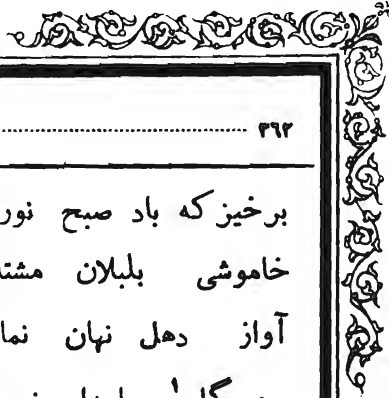 ۳۶۲
برخیز که باد صبح نور
خاموشی بلبلان مشتا
آواز دهل نهان نما